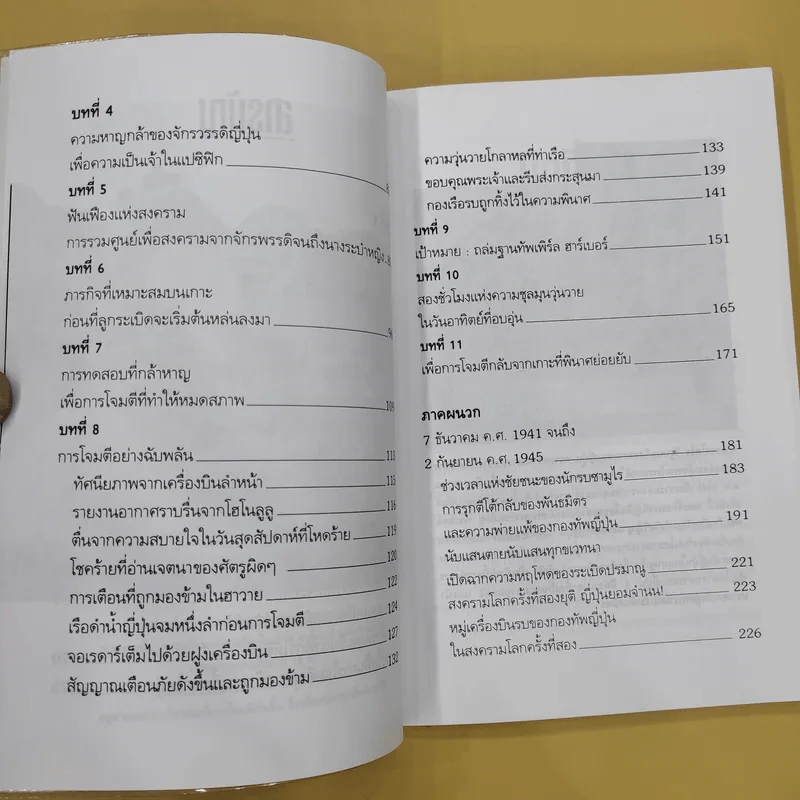 บทที่ 4
ความหาญกล้าของจักรวรรดิญี่ปุ่น
เพื่อความเป็นเจ้าในแปซิฟิก
บทที่ 5
ฟันเฟืองแห่งสงคราม
การรวมศูนย์เพื่อสงครามจากจักรพรรดิจนถึงนางระบำหญิง
บทที่ 6
ภารกิจที่เหมาะสมบนเกาะ
ก่อนที่ลูกระเบิดจะเริ่มต้นหล่นลงมา
บทที่ 7
การทดสอบที่กล้าหาญ
เพื่อการโจมตีที่ทำให้หมดสภาพ 109
บทที่ 8
การโจมตีอย่างฉับพลัน 113
ทัศนียภาพจากเครื่องบินลำหน้า 115
รายงานอากาศราบรื่นจากโฮโนลูลู 116
ตื่นจากความสบายใจในวันสุดสัปดาห์ที่โหดร้าย 119
โชคร้ายที่อ่านเจตนาของศัตรูผิดๆ 120
การเตือนที่ถูกมองข้ามในฮาวาย 122
เรือดำน้ำญี่ปุ่นจมหนึ่งลำก่อนการโจมตี 124
จอเรดาร์เต็มไปด้วยฝูงเครื่องบิน 127
สัญญาณเตือนภัยดังขึ้นและถูกมองข้าม 132
สารบัญ
ความวุ่นวายโกลาหลที่ท่าเรือ 133
ขอบคุณพระเจ้าและรีบส่งกระสุนมา 139
กองเรือรบถูกทิ้งไว้ในความพินาศ 141
บทที่ 9
เป้าหมาย : ถล่มฐานทัพเพิร์ล ฮาร์เบอร์ 151
บทที่ 10
สองชั่วโมงแห่งความชุลมุนวุ่นวาย
ในวันอาทิตย์ที่อบอุ่น 165
บทที่ 11
เพื่อการโจมตีกลับจากเกาะที่พินาศย่อยยับ 171
ภาคผนวก
7 ธันวาคม ค.ศ. 1941 จนถึง
2 กันยายน ค.ศ. 1945 181
ช่วงเวลาแห่งชัยชนะของนักรบซามูไร 183
การรุกตีโต้กลับของพันธมิตร
และความพ่ายแพ้ของกองทัพญี่ปุ่น 191
นับแสนตายนับแสนทุกขเวทนา
เปิดฉากความหฤโหดของระเบิดปรมาณู 221
สงครามโลกครั้งที่สองยุติ ญี่ปุ่นยอมจำนน! 223
หมู่เครื่องบินรบของกองทัพญี่ปุ่น
ในสงครามโลกครั้งที่สอง 226